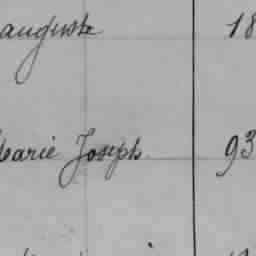 auguste 18
Marie Joseph 93